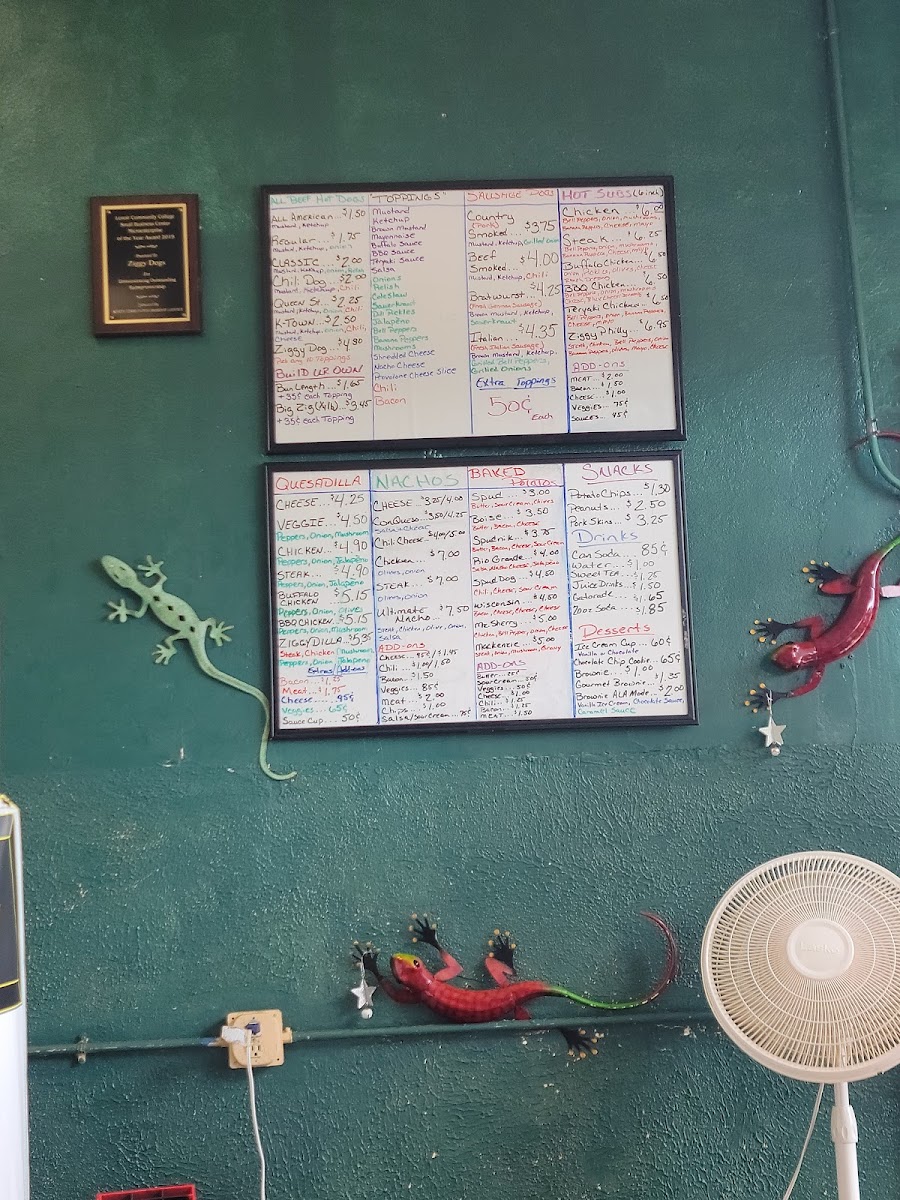 Lenoir Community College
Small Business Center
of the Year Award 2015
Presented To
Ziggy Dogs
For
Demonstrating Outstanding
Entrepreneurship
ALL BEEF HOT DOGS
ALL AMERICAN... $1.50
Mustard, Ketchup
Regular... $1.75
Mustard, Ketchup, Onion
CLASSIC... $2.00
Mustard, Ketchup, Onion, Relish
Chili Dog... $2.00
Mustard, Ketchup, Chili
QUEEN St... $2.25
Mustard, Ketchup, Onion, Chili
K-TOWN... $2.50
Mustard, Ketchup, Onion, Chili,
Cheese
Ziggy Dog... $4.80
Pick any 10 Toppings
BUILD UR OWN
Bun Length... $1.65
+ 35¢ each Topping
Big Zig (1/4 lb)... $3.45
+ 35¢ each Topping
"TOPPINGS"
Mustard
Ketchup
Brown Mustard
Mayonnaise
Buffalo Sauce
BBQ Sauce
Teryaki Sauce
Salsa
Onions
Relish
Coleslaw
Sauerkraut
Dill Pickles
Jalapeño
Bell Peppers
Banana Peppers
Mushrooms
Shredded Cheese
Nacho Cheese
Provolone Cheese Slice
Chili
Bacon
SAUSAGE DOGS
Country
(Pork)
Smoked... $3.75
Mustard, Ketchup, Grilled Onion
Beef $4.00
Smoked...
Mustard, Ketchup, Chili
Bratwurst... $4.25
(Fresh German Sausage)
Brown Mustard, Ketchup,
Sauerkraut
Italian... $4.35
(Fresh Italian Sausage)
Brown Mustard, Ketchup,
Grilled Bell Peppers,
Grilled Onions
Extra Toppings
50¢
Each
HOT SUBS (6 inch)
Chicken... $6.00
Bell Peppers, Onion, Mushrooms,
Banana Peppers, Cheese, Mayo
Steak... $6.25
Bell Peppers, Onion, Mushrooms,
Banana Peppers, Cheese, Mayo
Buffalo Chicken... $6.50
BBQ Chicken... $6.50
Teryaki Chicken... $6.50
Bell Peppers, Onion, Banana Peppers,
Cheese, Mayo
Ziggy Philly... $6.95
Steak, Chicken, Bell Peppers, Onion
Banana Peppers, Olives, Mayo, Cheese
ADD-ONS
MEAT... $2.00
Bacon... $1.50
Cheese... $1.00
Veggies... 75¢
SAUCES... 45¢
QUESADILLA
CHEESE... $4.25
VEGGIE... $4.50
Peppers, Onion, Mushroom
CHICKEN... $4.90
Peppers, Onion, Jalapeño
STEAK... $4.90
Peppers, Onion, Jalapeño
BUFFALO $5.15
CHICKEN
Peppers, Onion, Olives
BBQ CHICKEN... $5.15
Peppers, Onion, Mushroom
ZIGGYDILLA... $5.35
Steak, Chicken, Mushroom,
Peppers, Onion, Jalapeno
Extras/Add-ons
Bacon... $1.25
Meat... $1.75
Cheese... 95¢
Veggies... 65¢
Sauce Cup... 50¢
NACHOS
CHEESE... $3.25/4.00
ConQueso... $3.50/4.25
Salsa + Cheese
Chili Cheese... $4.00/5.00
Chicken... $7.00
Olives, Onion
STEAK... $7.00
Olives, Onion
Ultimate $7.50
Nacho...
Steak, Chicken, Olive, Onion,
Salsa
ADD-ONS
Cheese... 95¢/$1.45
Chili... $1.00/1.50
Bacon... $1.50
Veggies... 85¢
Meat... $2.00
Chips... $1.00
Salsa/Sour Cream... 75¢
BAKED
Potatos
Spud... $3.00
Butter, Sour Cream, Chives
Boise... $3.50
Butter, Bacon, Cheese
Spudnik... $3.75
Butter, Bacon, Cheese, Sour Cream
Rio Grande... $4.00
Salsa, Nacho Cheese, Jalapeño
Spud Dog... $4.50
Chili, Cheese, Sour Cream
Wisconsin... $4.50
Bacon, Cheese, Cheese, Cheese
McSherry... $5.00
Chicken, Bell Pepper, Onion, Cheese
Mackenzie... $5.00
Steak, Onion, Mushroom, Gravy
ADD-ONS
Butter... 25¢
Sour Cream... 50¢
Veggies... 50¢
Cheese... $1.00
Chili... $1.25
Bacon... $1.25
MEAT... $1.50
SNACKS
Potato Chips... $1.30
Peanuts... $2.50
Pork Skins... $3.25
Drinks
Can Soda... 85¢
Water... $1.00
Sweet Tea... $1.25
Juice Drinks... $1.50
Gatorade... $1.65
20oz Soda... $1.85
Desserts
Ice Cream Cup... 60¢
Vanilla or Chocolate
Chocolate Chip Cookie... 65¢
Brownie... $1.00
Gourmet Brownie... $1.35
Brownie ALA Mode... $2.00
Vanilla Ice Cream, Chocolate Sauce,
Caramel Sauce
Lasko